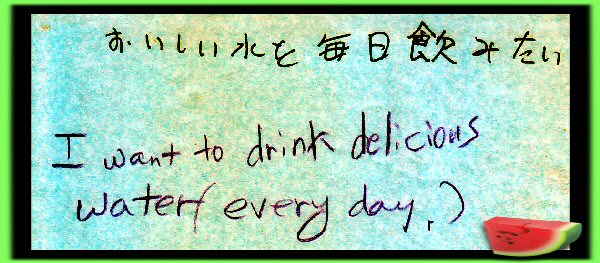 おいしい水を毎日飲みたい
I want to drink delicious
water(every day.)